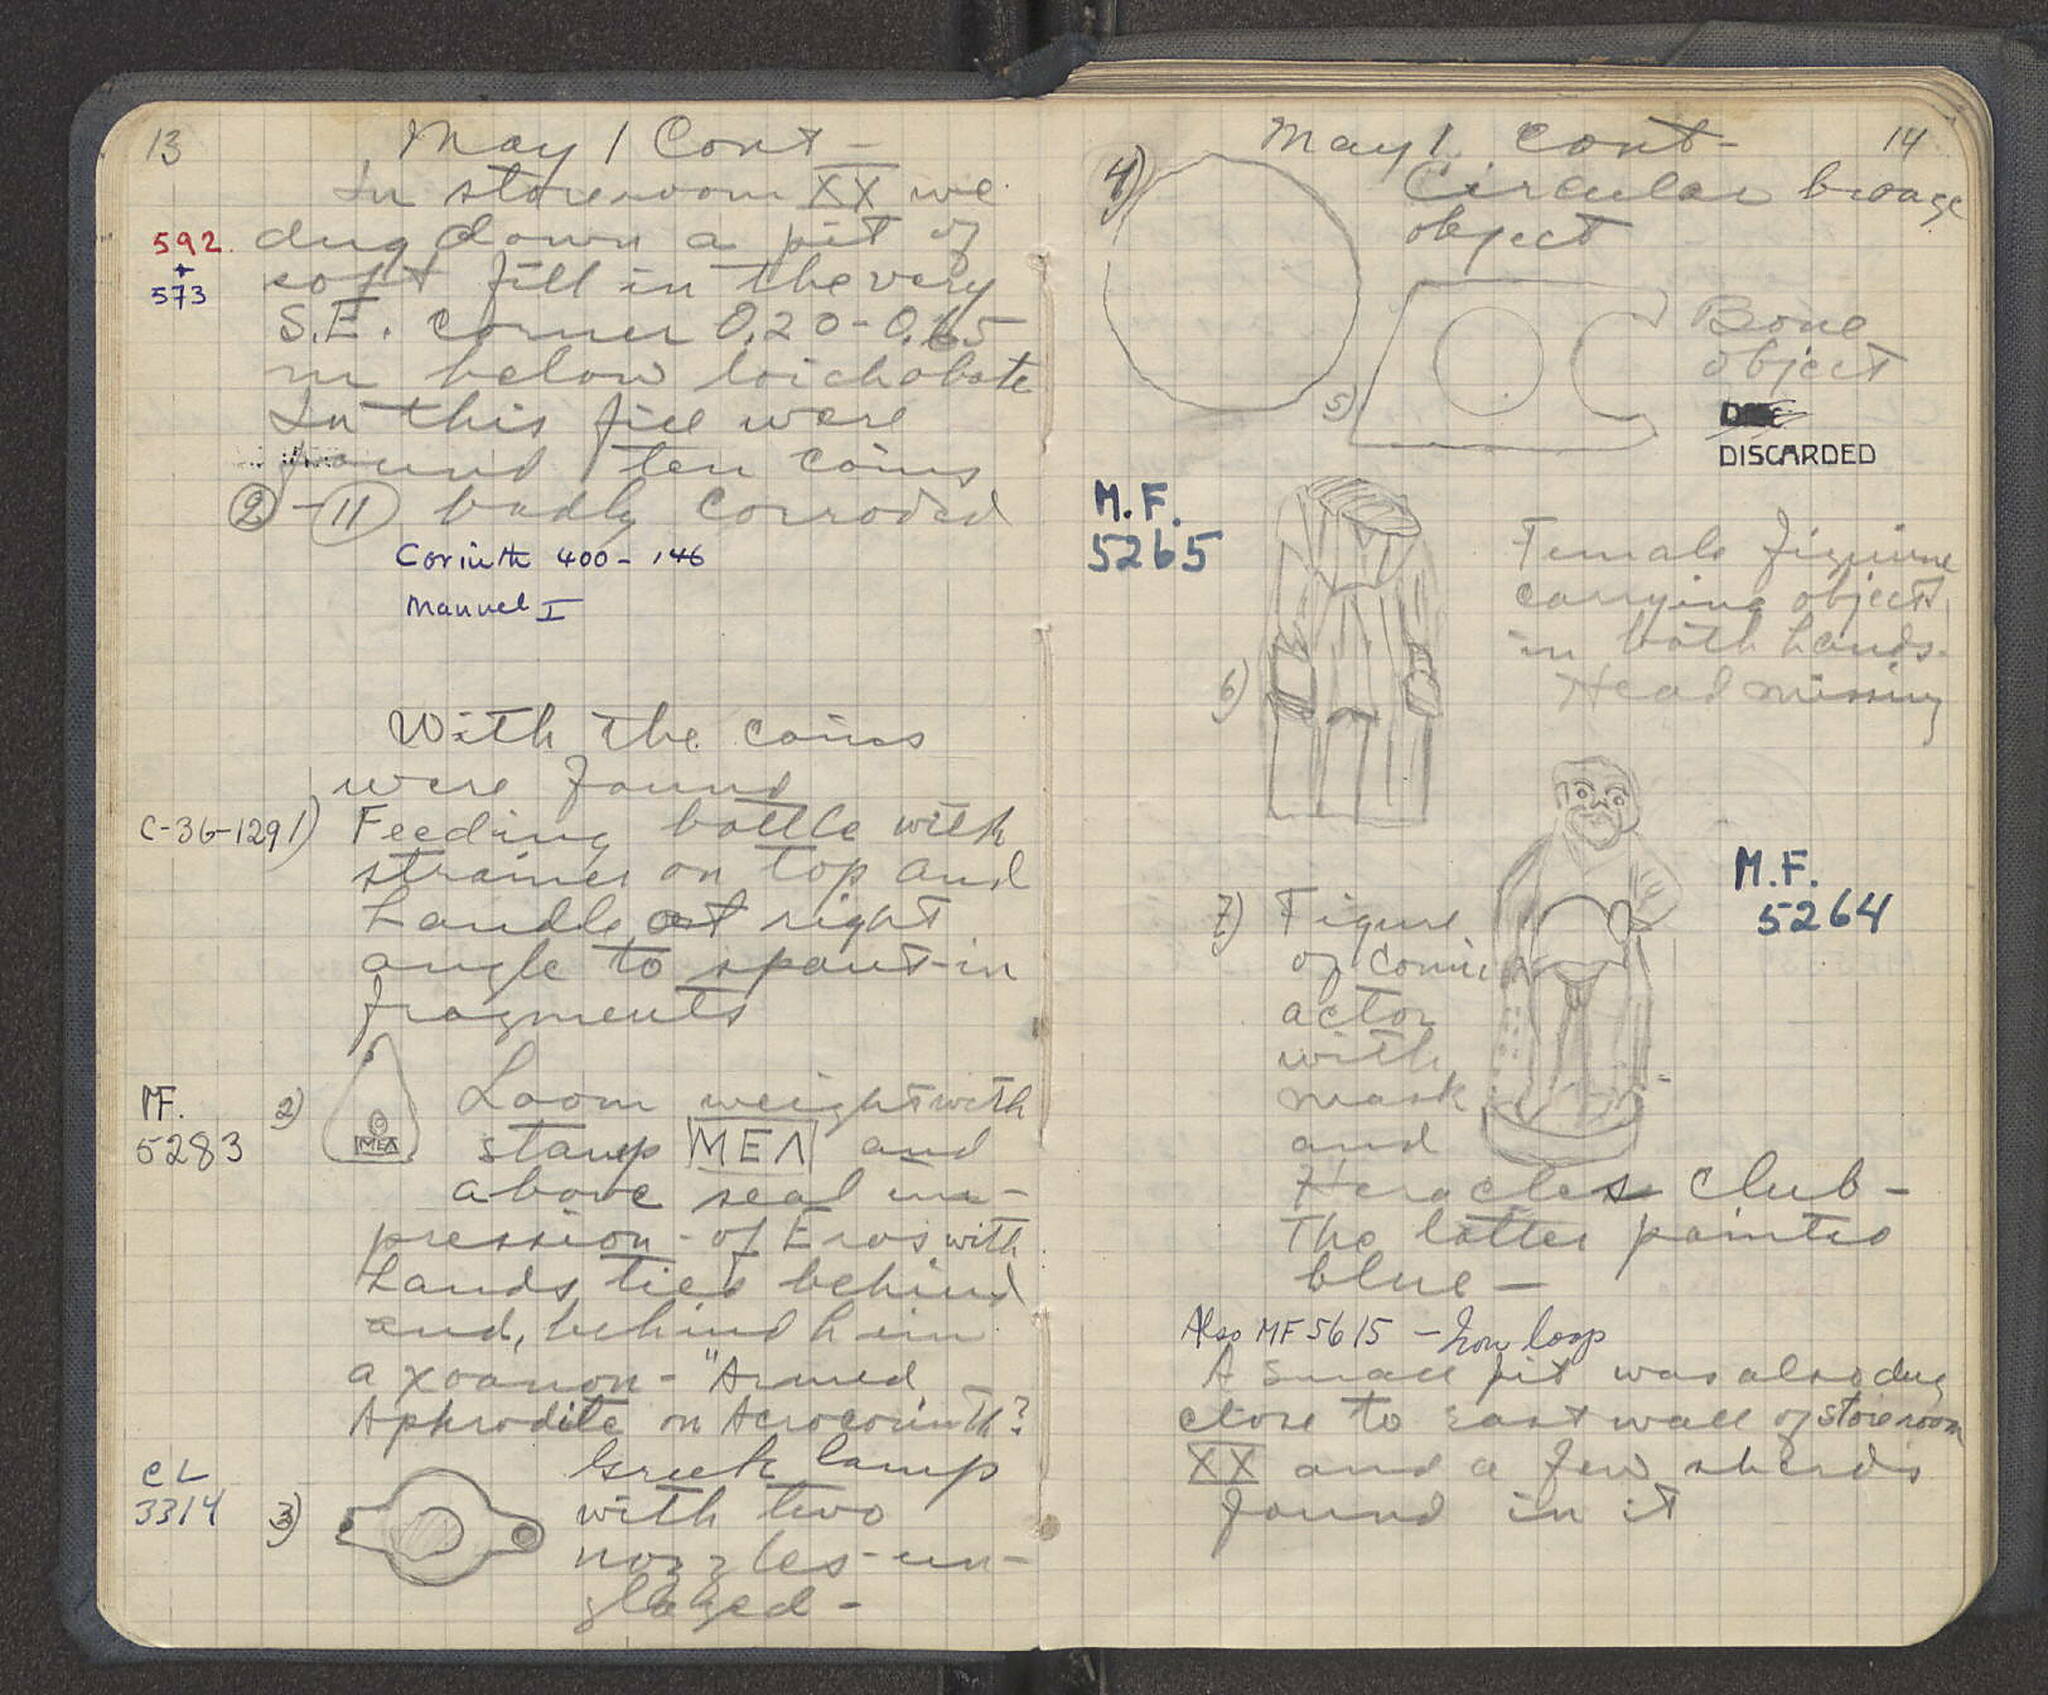 13
May 1 Cont -
In storeroom XX we
592
+
573
dug down a pit of
soft fill in the very
S.E. corner 0.20-0.65
m below toichobate
In this fill were
found ten coins
2 - 11 badly corroded
Corinth 400 - 146
Manuel I
With the coins
were found
C-36-129 1) Feeding bottle with
strainer on top and
handle at right
angle to spout - in
fragments
MF.
5283
2) Loom weight with
MEΛ
stamp MEΛ and
above seal im-
pression - of Eros with
hands tied behind
and, behind him
a xoanon - "Armed
Aphrodite on Acrocorinth?
CL
3314
3) Greek lamp
with two
nozzles - un-
glazed -
14
May 1 cont -
4) Circular bronze
object
5) Bone
object
DISCARDED
M.F.
5265
6) Female figurine
carrying object
in both hands.
Head missing
M.F.
5264
7) Figure
of comic
actor
with
mask
and
Heracles club -
The latter painted
blue -
Also MF 5615 - Iron loop
A small pit was also dug
close to east wall of storeroom
XX and a few sherds
found in it